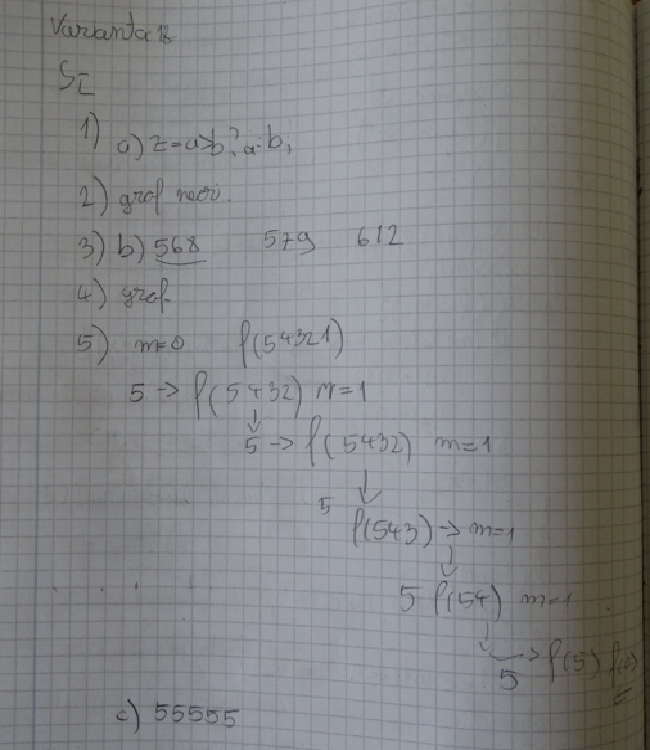 Varianta
SI
1) a) z=a>b?a:b;
2) graf neori.
3) b) 568 579 612
4) graf
5) m=0 f(54321)
5 -> f(5432) m=1
5 -> f(5432) m=1
5
f(543) -> m=1
5 f(54) m=1
5 -> f(5) f(0)
c) 55555